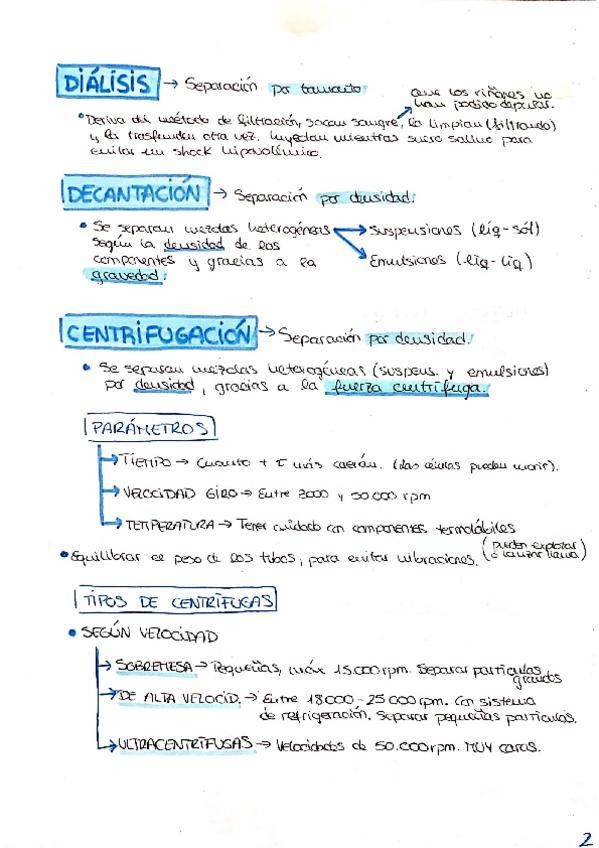 DIÁLISIS → Separación por tamaño.
que los riñones no
han podido depurar.
• Deriva del método de filtración, sacan sangre, la limpian (filtrando)
y la trasfunden otra vez. Inyectan mientras suero salino para
evitar un shock hipovolémico.
DECANTACIÓN → Separación por densidad.
• Se separan mezclas heterogéneas → Suspensiones (líq-sól)
según la densidad de los
componentes y gracias a la → Emulsiones (líq-líq)
gravedad.
CENTRIFUGACIÓN → Separación por densidad.
• Se separan mezclas heterogéneas (suspens. y emulsiones)
por densidad, gracias a la fuerza centrífuga.
PARÁMETROS
→ TIEMPO → Cuanto + T más caerán. (las células pueden morir).
→ VELOCIDAD GIRO → Entre 3000 y 50.000 rpm
→ TEMPERATURA → Tener cuidado con componentes termolábiles
• Equilibrar el peso de los tubos, para evitar vibraciones. (pueden explotar
TIPOS DE CENTRÍFUGAS
• SEGÚN VELOCIDAD
→ SOBREMESA → Pequeñas, máx 15.000 rpm. Separar partículas
grandes
→ DE ALTA VELOCID. → Entre 18000 - 25000 rpm. Con sistema
de refrigeración. Separar pequeñas partículas.
→ ULTRACENTRÍFUGAS → Velocidades de 50.000 rpm. MUY caras.
2